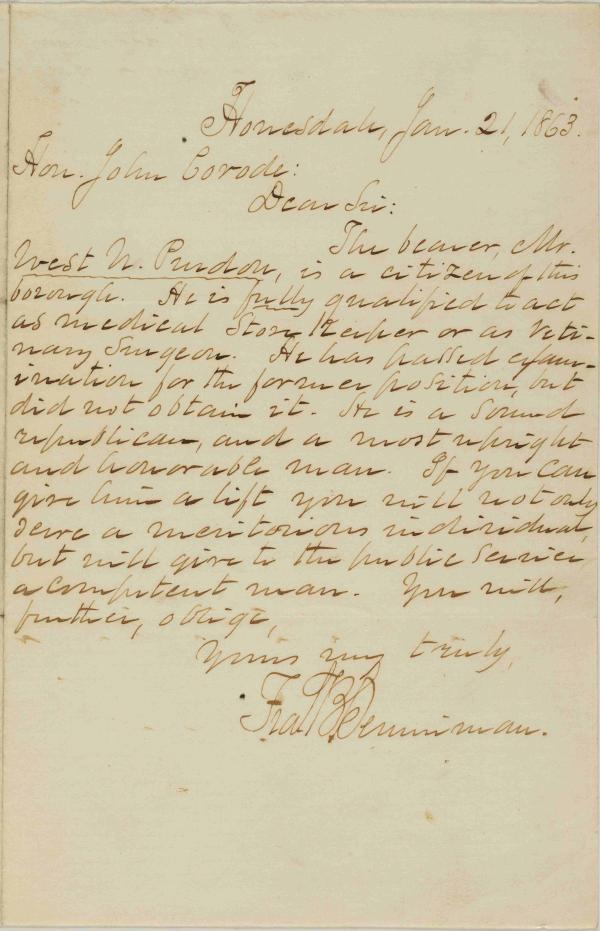 Honesdale, Jan. 21, 1863.
Hon. John Covode:
Dear Sir:
The bearer, Mr.
West N. Purdon, is a citizen of this
borough. He is fully qualified to act
as medical Store Keeper or as Veti-
nary Surgeon. He has passed exam-
ination for the former position, but
did not obtain it. He is a sound
republican, and a most upright
and honorable man. If you can
give him a lift you will not only
serve a meritorious individual,
but will give to the public service
a competent man. You will,
further, oblige,
Yours very truly,
Fra. B. Penniman.